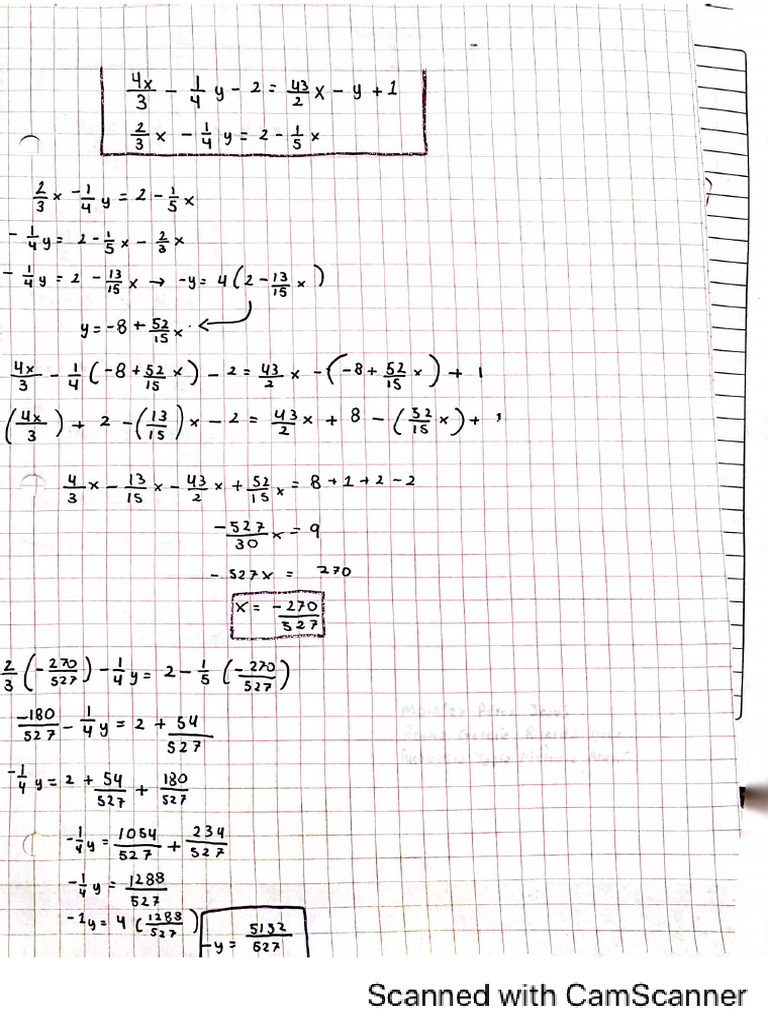 4x/3 - 1/4 y - 2 = 43/2 x - y + 1
2/3 x - 1/4 y = 2 - 1/5 x
2/3 x - 1/4 y = 2 - 1/5 x
- 1/4 y = 2 - 1/5 x - 2/3 x
- 1/4 y = 2 - 13/15 x → -y = 4 (2 - 13/15 x)
y = -8 + 52/15 x ·
4x/3 - 1/4 (-8 + 52/15 x) - 2 = 43/2 x - (-8 + 52/15 x) + 1
(4x/3) + 2 - (13/15) x - 2 = 43/2 x + 8 - (52/15 x) + 1
4/3 x - 13/15 x - 43/2 x + 52/15 x = 8 + 1 + 2 - 2
-527/30 x = 9
- 527x = 270
x = -270/527
2/3 (-270/527) - 1/4 y = 2 - 1/5 (-270/527)
-180/527 - 1/4 y = 2 + 54/527
- 1/4 y = 2 + 54/527 + 180/527
- 1/4 y = 1054/527 + 234/527
- 1/4 y = 1288/527
-1y = 4 (1288/527) -y = 5152/527
Scanned with CamScanner